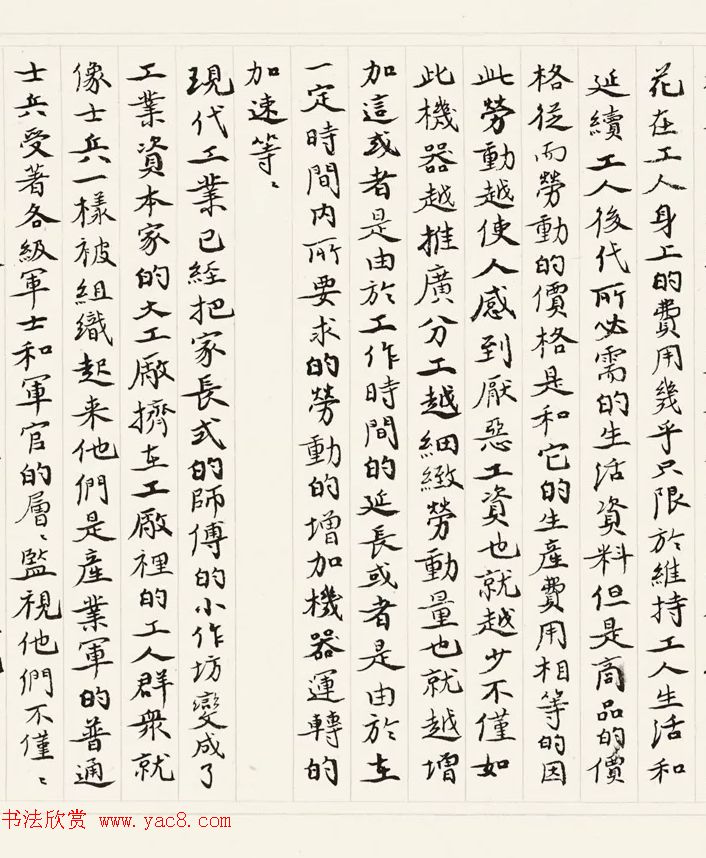 花在工人身上的費用幾乎只限於維持工人生活和
延續工人後代所必需的生活資料但是商品的價
格從而勞動的價格是和它的生產費用相等的因
此勞動越使人感到厭惡工資也就越少不僅如
此機器越推廣分工越細緻勞動量也就越增
加這或者是由於工作時間的延長或者是由於在
一定時間内所要求的勞動的增加機器運轉的
加速等、
現代工業已經把家長式的師傅的小作坊變成了
工業資本家的大工廠擠在工廠裡的工人群衆就
像士兵一樣被組織起来他們是産業軍的普通
士兵受著各級軍士和軍官的層、監視他們不僅、
书法欣赏 www.yac8.com